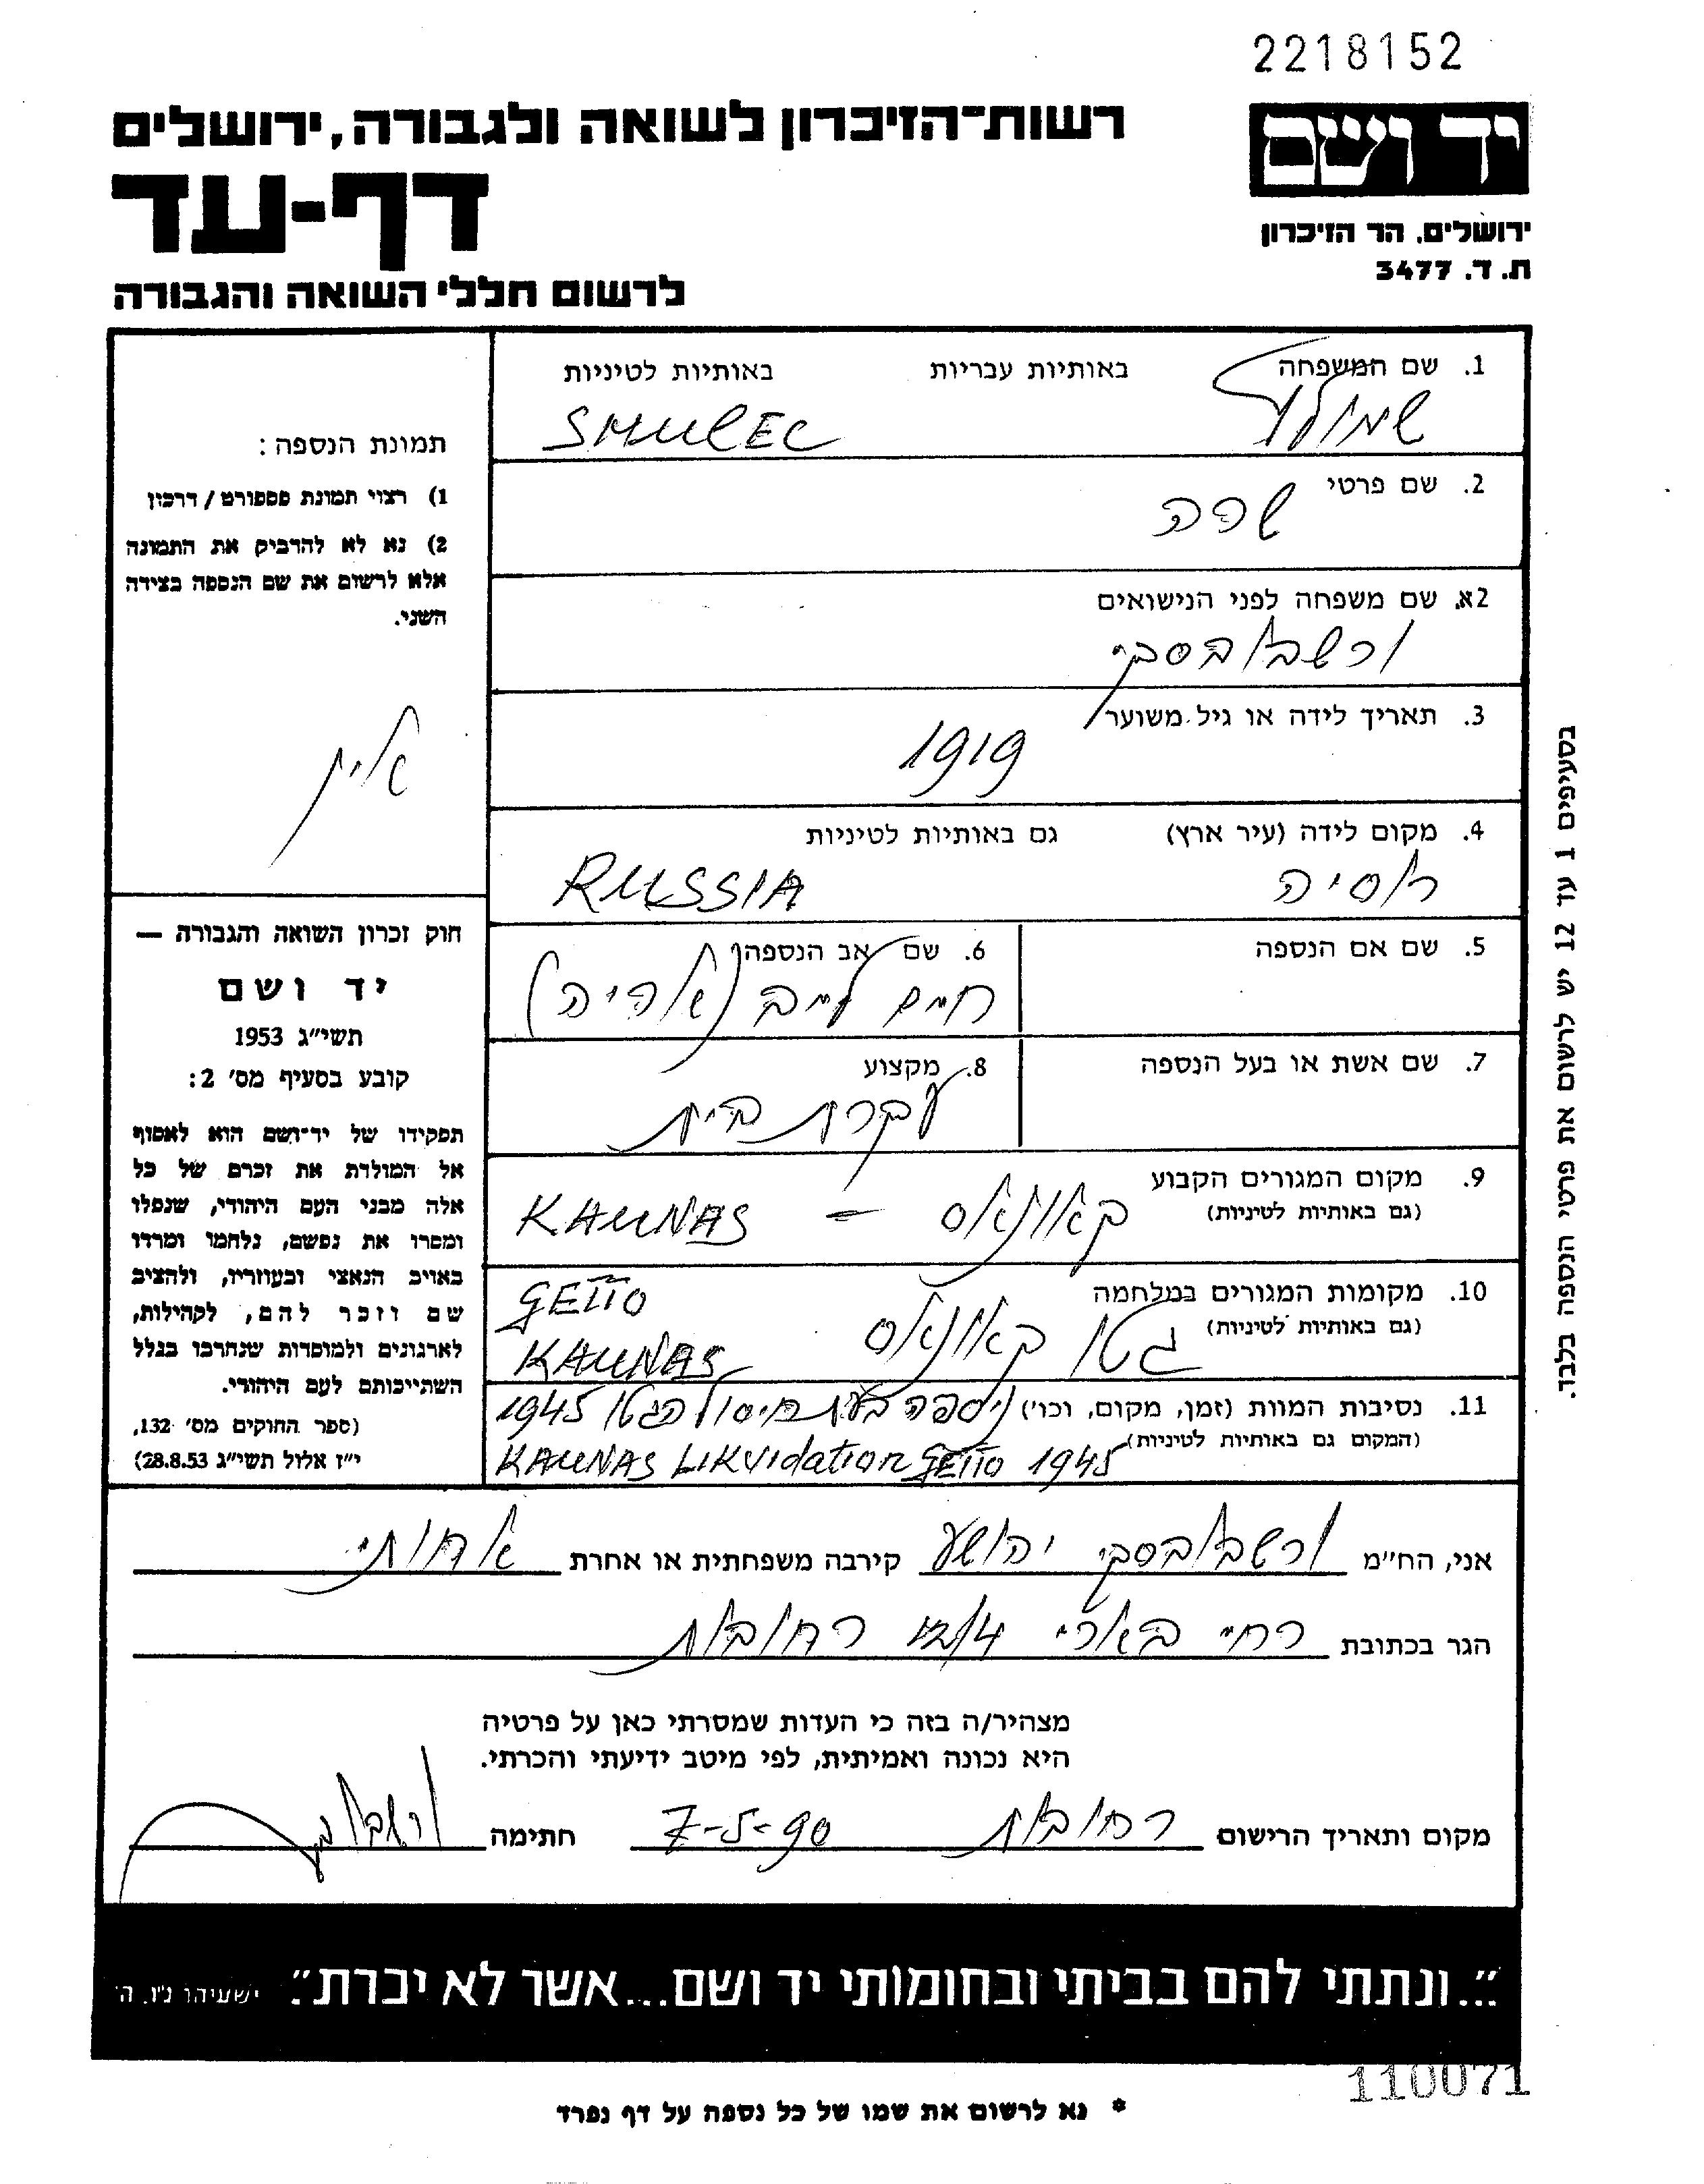 2218152
רשות־הזיכרון לשואה ולגבורה, ירושלים
יד ושם
דף-עד
ירושלים, הר הזיכרון
ת. ד. 3477
לרשום חללי השואה והגבורה
1. שם המשפחה באותיות עבריות באותיות לטיניות
SMULEC
2. שם פרטי
שרה
2א. שם משפחה לפני הנישואים
ורשבובסקי
3. תאריך לידה או גיל משוער
1919
4. מקום לידה (עיר ארץ) גם באותיות לטיניות
רוסיה RUSSIA
5. שם אם הנספה
6. שם אב הנספה
חיים לייב (אריה)
7. שם אשת או בעל הנספה
8. מקצוע
עקרת בית
9. מקום המגורים הקבוע
(גם באותיות לטיניות)
קאונאס – KAUNAS
10. מקומות המגורים במלחמה
(גם באותיות לטיניות)
גטו קאונאס GETTO
KAUNAS
11. נסיבות המוות (זמן, מקום, וכו') ניספה בעת חיסול הגטו 1945
(המקום גם באותיות לטיניות) KAUNAS LIKvidation GETTO 1945
תמונת הנספה:
1) רצוי תמונת פספורט / דרכון
2) נא לא להדביק את התמונה
אלא לרשום את שם הנספה בצידה
השני.
אין
חוק זכרון השואה והגבורה —
יד ושם
תשי"ג 1953
קובע בסעיף מס' 2:
תפקידו של יד־ושם הוא לאסוף
אל המולדת את זכרם של כל
אלה מבני העם היהודי, שנפלו
ומסרו את נפשם, נלחמו ומרדו
באויב הנאצי ובעוזריו, ולהציב
שם וזכר להם, לקהילות,
לארגונים ולמוסדות שנחרבו בגלל
השתייכותם לעם היהודי.
(ספר החוקים מס' 132,
י"ז אלול תשי"ג 28.8.53)
בסעיפים 1 עד 12 יש לרשום את פרטי הנספה בלבד.
אני, הח"מ ורשבובסקי יהושע קירבה משפחתית או אחרת אחותי
הגר בכתובת רח' 12/4 רחובות
מצהיר/ה בזה כי העדות שמסרתי כאן על פרטיה
היא נכונה ואמיתית, לפי מיטב ידיעתי והכרתי.
מקום ותאריך הרישום רחובות 7-5-90 חתימה
"...ונתתי להם בביתי ובחומותי יד ושם...אשר לא יכרת". ישעיהו נ"ו, ה'
110071
* נא לרשום את שמו של כל נספה על דף נפרד